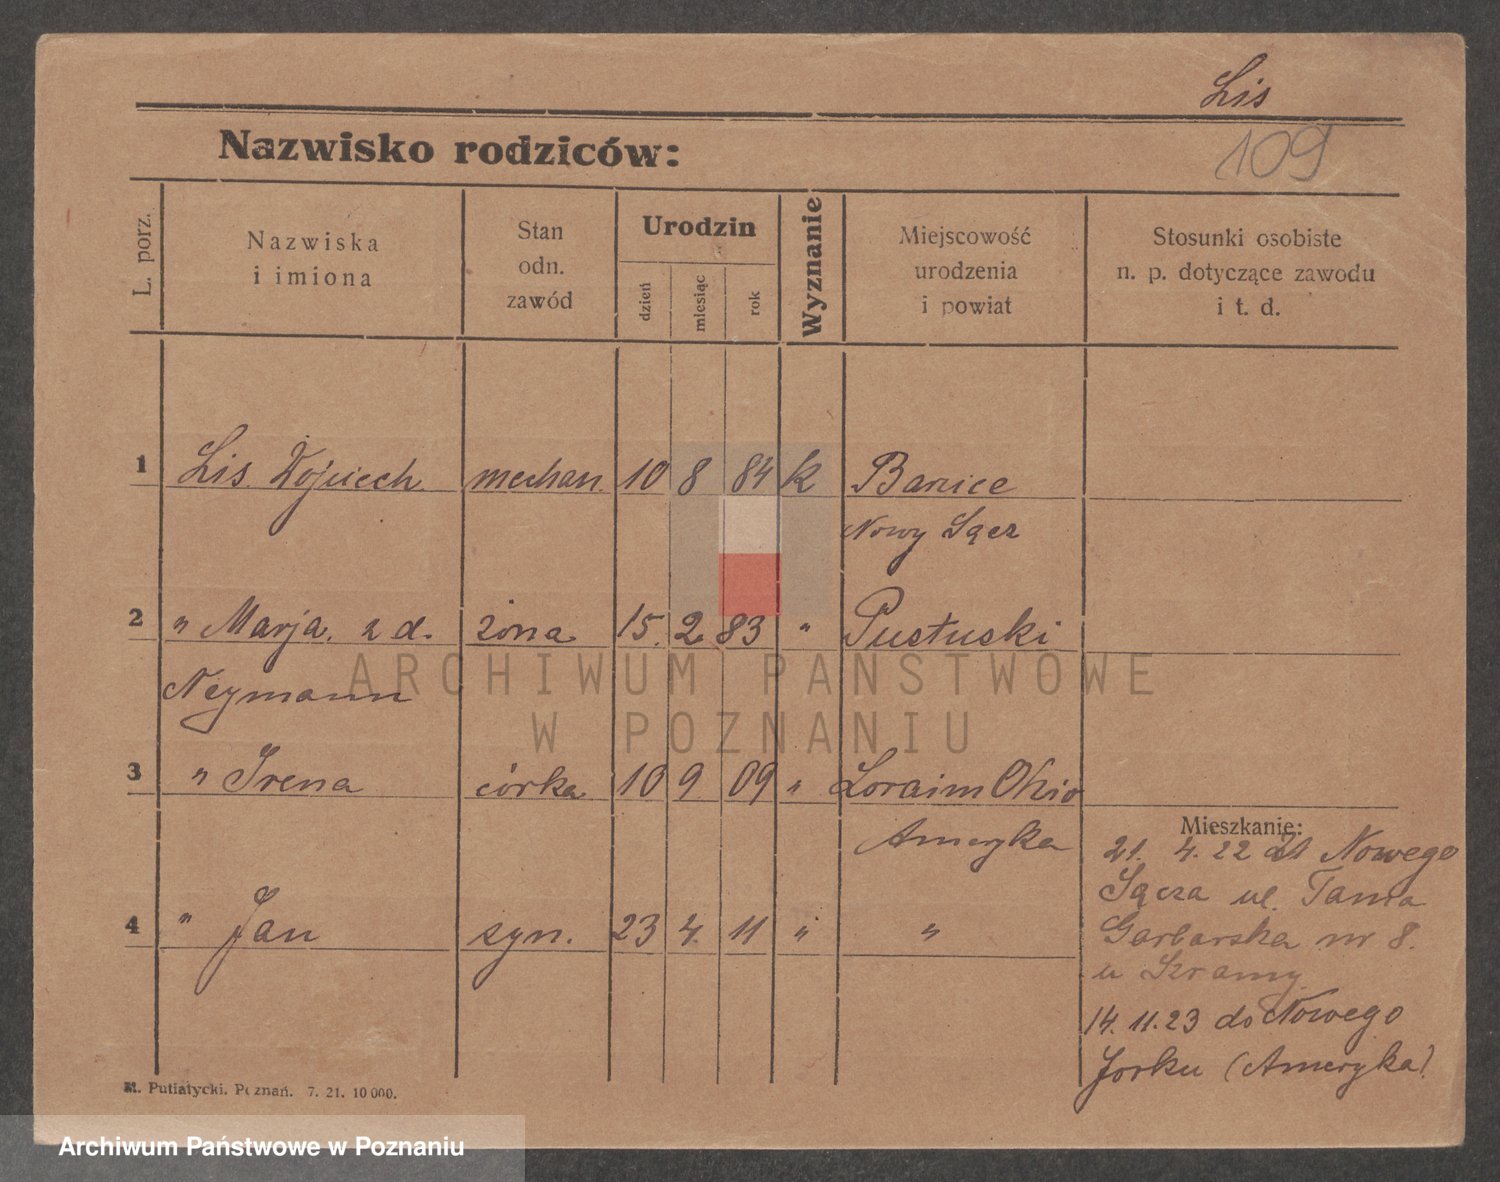 Lis
109
Nazwisko rodziców:
L. porz.
Nazwiska
i imiona
Stan
odn.
zawód
Urodzin
dzień
miesiąc
rok
Wyznanie
Miejscowość
urodzenia
i powiat
Stosunki osobiste
n. p. dotyczące zawodu
i t. d.
1 Lis Wojciech mechan. 10 8 84 k Banice
Nowy Sącz
2 " Marja z d. żona 15. 2. 83 " Pustuski
Neymann
3 " Irena córka 10 9 09 " Loraim Ohio
Ameryka
4 " Jan syn. 23 4. 11 " "
Mieszkanie:
21. 4. 22 Nowego
Sącza ul. Tama
Garbarska nr 8.
u Szramy
14. 11. 23 do Nowego
Jorku (Ameryka).
M. Putiatycki. Poznań. 7. 21. 10 000.
ARCHIWUM PAŃSTWOWE
W POZNANIU
Archiwum Państwowe w Poznaniu